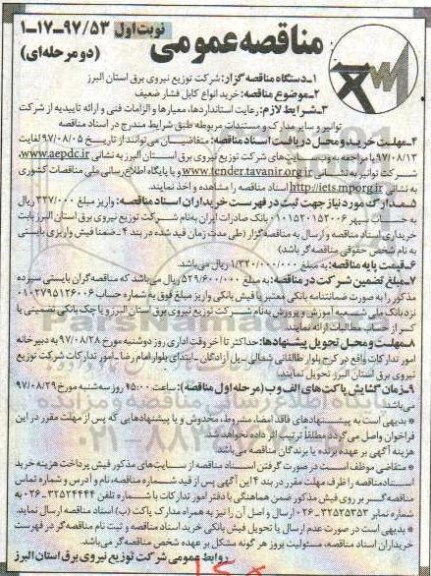 مناقصه عمومی
نوبت اول ۹۷/۵۳-۱۷-۱
(دو مرحله‌ای)
۱-دستگاه مناقصه گزار: شرکت توزیع نیروی برق استان البرز
۲-موضوع مناقصه: خرید انواع کابل فشار ضعیف
۳-شرایط لازم: رعایت استانداردها، معیارها و الزامات فنی و ارائه تاییدیه از شرکت
توانیر و سایر مدارک و مستندات مربوطه طبق شرایط مندرج در اسناد مناقصه
۴-مهلت خرید و محل دریافت اسناد مناقصه: متقاضیان می‌توانند از تاریخ ۹۷/۰۸/۰۵ لغایت
۹۷/۰۸/۱۳ با مراجعه به وب سایت‌های شرکت توزیع نیروی برق استان البرز به نشانی www.aepdc.ir،
شرکت توانیر به نشانی www.tender.tavanir.org.ir و یا پایگاه اطلاع رسانی ملی مناقصات کشوری
به نشانی http://iets.mporg.ir اسناد مناقصه را مشاهده و اخذ نمایند.
۵-مدارک مورد نیاز جهت ثبت در فهرست خریداران اسناد مناقصه: واریز مبلغ ۳۲۷/۰۰۰ ریال
به حساب سپهر ۰۱۰۱۵۲۰۱۵۲۰۰۶ بانک صادرات ایران به نام شرکت توزیع نیروی برق استان البرز بابت
خریداری اسناد مناقصه و ارسال به مناقصه گزار (طی مدت زمان قید شده در بند ۴ - ضمنا فیش واریزی بایستی
به نام شخص حقوقی مناقصه گر باشد)
۶-قیمت پایه مناقصه: به مبلغ ۱/۳۲۰/۰۰۰/۰۰۰ ریال می‌باشد
۷-مبلغ تضمین شرکت در مناقصه: به مبلغ ۵۲۹/۶۰۰/۰۰۰ ریال می‌باشد که مناقصه گران بایستی سپرده
مذکور را به صورت ضمانتنامه بانکی معتبر یا فیش بانکی واریز مبلغ فوق به شماره حساب ۰۱۰۲۷۹۵۱۲۶۰۰۶
نزد بانک ملی شعبه آموزش و پرورش به نام شرکت توزیع نیروی برق استان البرز و یا چک بانکی تضمینی یا
کسر از حساب مطالبات ارائه نمایند
۸-مهلت و محل تحویل پیشنهادها: حداکثر تا آخر وقت اداری روز دوشنبه مورخ ۹۷/۰۸/۲۸ به دبیرخانه
امور تدارکات واقع در کرج بلوار طالقانی شمالی - پل آزادگان - ابتدای بلوار امام رضا - امور تدارکات شرکت توزیع
نیروی برق استان البرز تحویل نمایند.
۹-زمان گشایش پاکت‌های الف و ب (مرحله اول مناقصه): ساعت ۱۵:۰۰ روز سه‌شنبه مورخ ۹۷/۰۸/۲۹
می‌باشد
* بدیهی است به پیشنهادهای فاقد امضا، مشروط، مخدوش و یا پیشنهادهایی که پس از مهلت مقرر در این
فراخوان واصل می‌گردد مطلقاً ترتیب اثر داده نخواهد شد
هزینه آگهی بر عهده برنده یا برندگان مناقصه می‌باشد
* متقاضی موظف است در صورت گرفتن اسناد مناقصه از سایت‌های مذکور فیش پرداخت هزینه خرید
اسناد مناقصه را ظرف مهلت مقرر در بند ۴ این آگهی پس از قید شماره مناقصه، نام و آدرس و شماره تماس
مناقصه گر بر روی فیش مذکور ضمن هماهنگی با دفتر امور تدارکات با شماره تلفن ۳۲۵۲۴۴۴۴-۰۲۶ به
شماره نمابر ۳۲۵۲۵۳۵۳-۰۲۶ ارسال و اصل آن را نیز به همراه مدارک پاکت (ب) اسناد مناقصه ارسال نماید.
* بدیهی است در صورت عدم ارسال یا تحویل فیش بانکی خرید اسناد مناقصه و ثبت نام مناقصه گر در فهرست
خریداران اسناد مناقصه، مسئولیت بروز هر گونه مشکل بر عهده شخص مناقصه گر می‌باشد.
روابط عمومی شرکت توزیع نیروی برق استان البرز